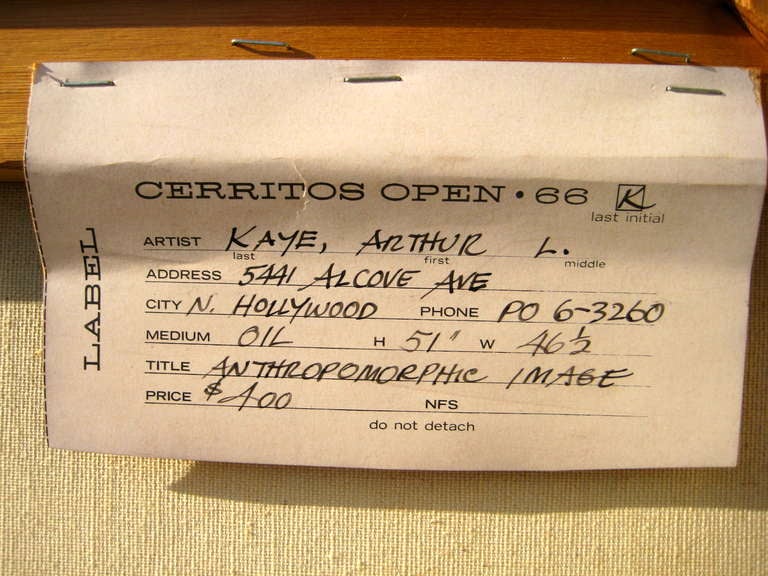 CERRITOS OPEN • 66 K
last initial
ARTIST KAYE, ARTHUR L.
last first middle
ADDRESS 5441 ALCOVE AVE
CITY N. HOLLYWOOD PHONE PO 6-3260
MEDIUM OIL H 51" W 46½
TITLE ANTHROPOMORPHIC IMAGE
PRICE $400 NFS
do not detach
LABEL